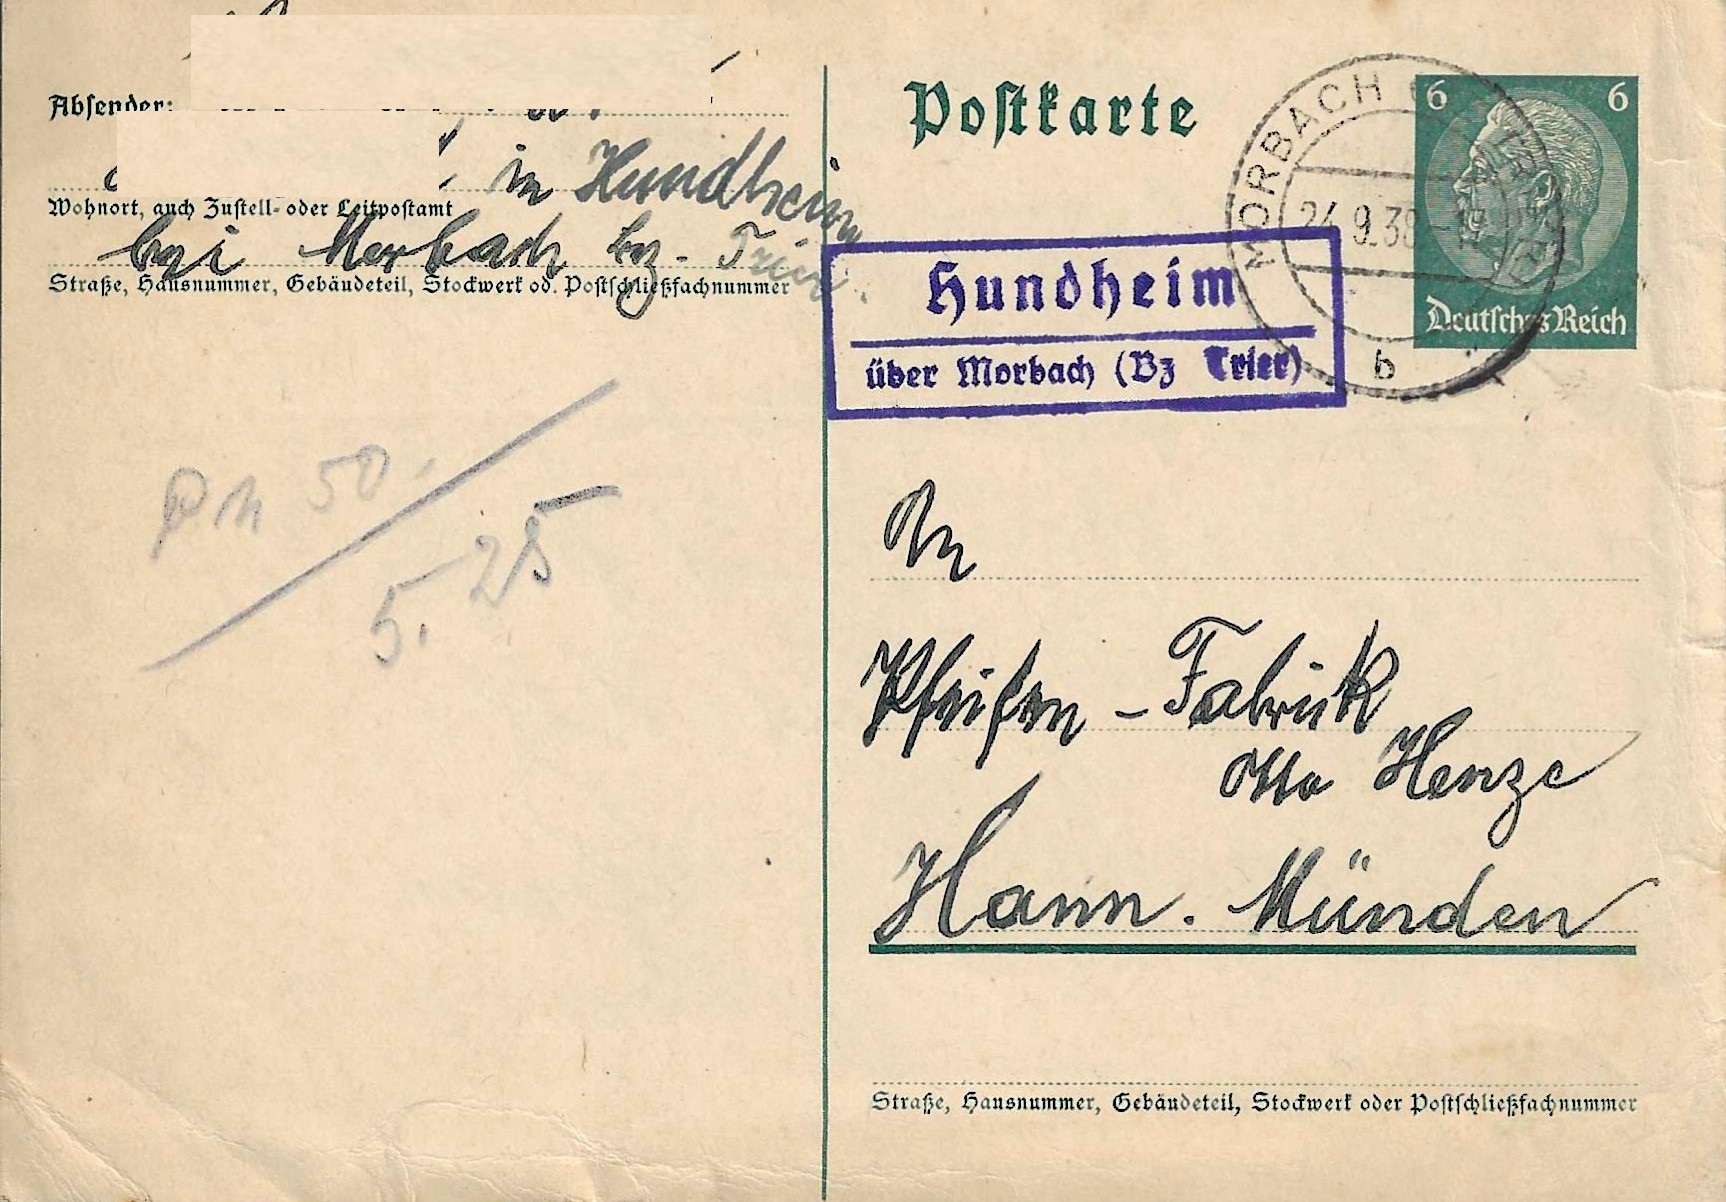 Absender:
in Hundheim
Wohnort, auch Zustell- oder Leitpostamt
bei Morbach bz. Trier.
Straße, Hausnummer, Gebäudeteil, Stockwerk od. Postschließfachnummer
50.-
5. 25
Postkarte
MORBACH
24.9.38
b
6 6
Deutsches Reich
Hundheim
über Morbach (Bz Trier)
An
Pfeifen-Fabrik
Otto Henze
Hann. Münden
Straße, Hausnummer, Gebäudeteil, Stockwerk oder Postschließfachnummer